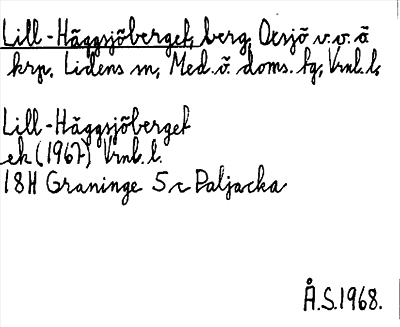 Lill-Häggsjöberget, berg, Oxsjö v.o.ä
krp, Lidens sn, Med.ö. doms. tg, Vrnl. l.
Lill-Häggsjöberget
ek (1967) Vrnl. l.
18H Graninge 5 c Paljacka
Å.S. 1968.